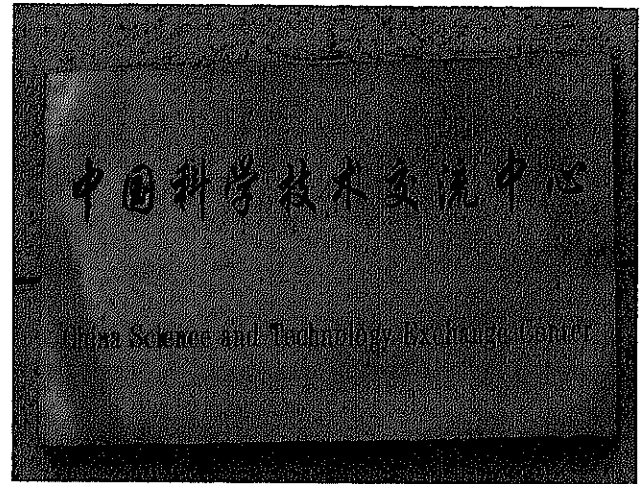 中国科学技术交流中心
China Science and Technology Exchange Center